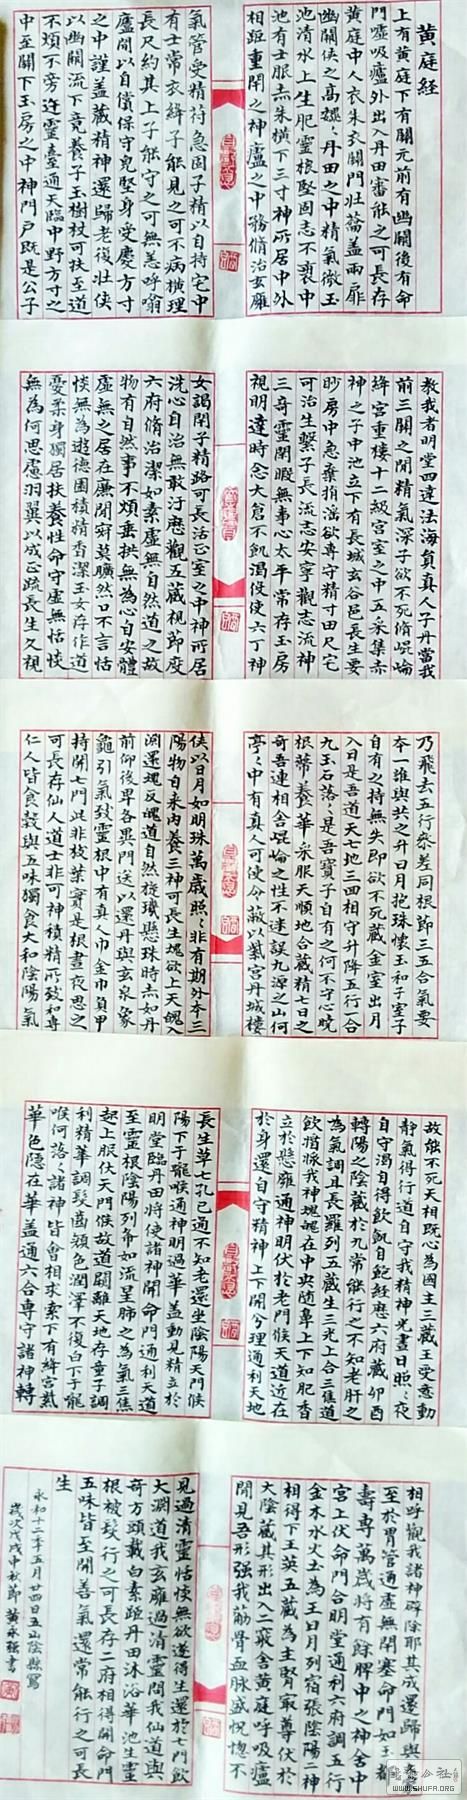 黄庭經
上有黄庭下有關元前有幽關後有命
門噓吸廬外出入丹田審能行之可長存
黄庭中人衣朱衣關門壯籥盖兩扉
幽關侠之高魏〻丹田之中精氣微玉
池清水上生肥靈根堅固志不衰中
池有士服赤朱横下三寸神所居中外
相距重閉之神廬之中務脩治玄廱
氣管受精符急固子精以自持宅中
有士常衣絳子能見之可不病横理
長尺約其上子能守之可無恙呼噏
廬間以自償保守皃堅身受慶方寸
之中謹盖藏精神還歸老復壯侠
以幽關流下竟養子玉樹杖可扶至道
不煩不旁迕靈臺通天臨中野方寸之
中至關下玉房之中神門户既是公子
教我者明堂四達法海負真人子丹當我
前三關之間精氣深子欲不死脩崐崘
絳宮重樓十二級宮室之中五采集赤
神之子中池立下有長城玄谷邑長生要
眇房中急棄捐滛欲專守精寸田尺宅
可治生繫子長流志安寧觀志流神
三奇靈閉暇無事心太平常存玉房
視明達時念大倉不飢渴役使六丁神
女謁閉子精路可長活正室之中神所居
洗心自治無敢汙歷觀五藏視節度
六府脩治潔如素虚無自然道之故
物有自然事不煩垂拱無為心自安體
虚無之居在廉間寂莫曠然口不言恬
惔無為遊德園積精香潔玉女存作道
憂柔身獨居扶養性命守虚無恬惔
無為何思慮羽翼以成正疏長生久視
乃飛去五行叅差同根節三五合氣要
夲一誰與共之升日月抱珠懷玉和子室子
自有之持無失即欲不死藏金室出月
入日是吾道天七地三囬相守升降五行一合
九玉石落〻是吾寶子自有之何不守心曉
根蒂養華采服天順地合藏精七日之
奇吾連相舍崐崘之性不迷誤九源之山何
亭〻中有真人可使令蔽以紫宮丹城樓
侠以日月如明珠萬歲照〻非有期外夲三
陽物自来内養三神可長生魂欲上天魄入
淵還魂反魄道自然旋璣懸珠時
前仰後卑各異門送以還丹與玄泉象
龜引氣致靈根中有真人巾金巾負甲
持開七門此非枝葉實是根晝夜思之
可長存仙人道士非可神積精所致和專
仁人皆食榖與五味獨食大和陰陽氣
故能不死天相既心為國主三藏王受意動
静氣得行道自守我精神光晝日照〻夜
自守渴自得飲飢自飽経歷六府藏卯酉
轉陽之陰藏於九常能行之不知老肝之
為氣調且長羅列五藏生三光上合三焦道
飲醬漿我神魂魄在中央随鼻上下知肥香
立於懸廱通神明伏於老門候天道近在
於身還自守精神上下開分理通利天地
長生草七孔已通不知老還坐陰陽天門候
陽下于嚨喉通神明過華盖動見精立於
明堂臨丹田將使諸神開命門通利天道
至靈根陰陽列布如流星肺之為氣三焦
起上服伏天門候故道闚離天地存童子調
利精華調髮齒顔色潤澤不復白下于嚨
喉何落〻諸神皆會相求索下有絳宮紫
華色隱在華盖通六合專守諸神轉
相呼觀我諸神辟除耶其成還歸與
至於胃管通虚無閉塞命門如玉都
壽專萬歲將有餘脾中之神舍中
宮上伏命門合明堂通利六府調五行
金木水火土為王日月列宿張陰陽二神
相得下玉英五藏為主腎最尊伏於
大陰藏其形出入二竅舍黄庭呼吸廬
間見吾形强我筋骨血脉盛怳惚不
見過清靈恬惔無欲遂得生還於七門飲
大淵道我玄廱過清靈問我仙道與
奇方頭戴白素距丹田沐浴華池生靈
根被髮行之可長存二府相得開命門
五味皆至開善氣還常能行之可長
生
永和十二年五月廿四日五山陰縣寫
歲次戊戌中秋節黄永强書
WWW.SHUFA.ORG